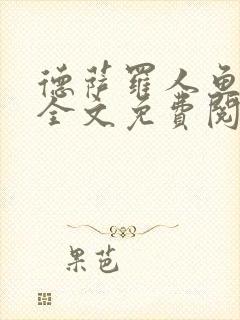 德萨罗人鱼
全文免费阅
果芭